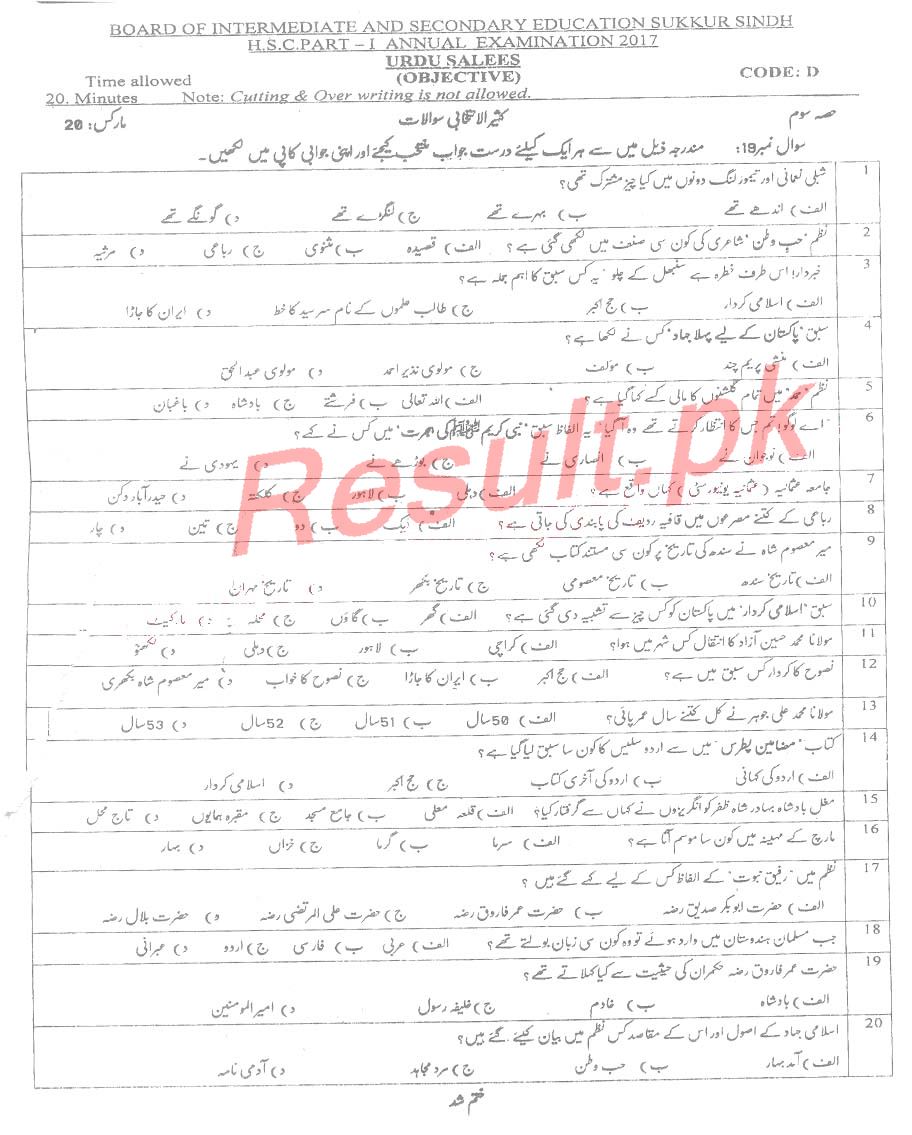 BOARD OF INTERMEDIATE AND SECONDARY EDUCATION SUKKUR SINDH
H.S.C.PART – I ANNUAL EXAMINATION 2017
URDU SALEES
(OBJECTIVE)
CODE: D
Time allowed
20. Minutes Note: Cutting & Over writing is not allowed.
حصہ سوم کثیر الانتخابی سوالات مارکس: 20
سوال نمبر19: مندرجہ ذیل میں سے ہر ایک کیلئے درست جواب منتخب کیجئے اور اپنی جوابی کاپی میں لکھیں۔
1 شبلی نعمانی اور تیمور لنگ دونوں میں کیا چیز مشترک تھی؟
الف) اندھے تھے ب) بہرے تھے ج) لنگڑے تھے د) گونگے تھے
2 نظم 'حب وطن' شاعری کی کون سی صنف میں لکھی گئی ہے؟ الف) قصیدہ ب) مثنوی ج) رباعی د) مرثیہ
3 خبردار! اس طرف خطرہ ہے سنبھل کے چلو' یہ کس سبق کا اہم جملہ ہے؟
الف) اسلامی کردار ب) حج اکبر ج) طالب علموں کے نام سرسید کا خط د) ایران کا جاڑا
4 سبق 'پاکستان کے لیے پہلا جہاد' کس نے لکھا ہے؟
الف) منشی پریم چند ب) مؤلف ج) مولوی نذیر احمد د) مولوی عبدالحق
5 نظم 'حمد' میں تمام گلشنوں کا مالی کے کہا گیا ہے؟ الف) اللہ تعالی ب) فرشتے ج) بادشاہ د) باغبان
6 اے لوگو! تم جس کا انتظار کرتے تھے وہ آ گیا' یہ الفاظ سبق 'نبی کریم ﷺ کی ہجرت' میں کس نے کہے؟
الف) نوجوان نے ب) انصاری نے ج) بوڑھے نے د) یہودی نے
7 جامعہ عثمانیہ (عثمانیہ یونیورسٹی) کہاں واقع ہے؟ الف) دہلی ب) لاہور ج) کلکتہ د) حیدرآباد دکن
8 رباعی کے کتنے مصرعوں میں قافیہ ردیف کی پابندی کی جاتی ہے؟ الف) ایک ب) دو ج) تین د) چار
9 میر معصوم شاہ نے سندھ کی تاریخ پر کون سی مستند کتاب لکھی ہے؟
الف) تاریخ سندھ ب) تاریخ معصومی ج) تاریخ بکھر د) تاریخ مہران
10 سبق 'اسلامی کردار' میں پاکستان کو کس چیز سے تشبیہ دی گئی ہے؟ الف) گھر ب) گاؤں ج) محلہ د) مارکیٹ
11 مولانا محمد حسین آزاد کا انتقال کس شہر میں ہوا؟ الف) کراچی ب) لاہور ج) دہلی د) لکھنؤ
12 نصوح کا کردار کس سبق میں ہے؟ الف) حج اکبر ب) ایران کا جاڑا ج) نصوح کا خواب د) میر معصوم شاہ بکھری
13 مولانا محمد علی جوہر نے کل کتنے سال عمر پائی؟ الف) 50سال ب) 51سال ج) 52سال د) 53سال
14 کتاب 'مضامین پطرس' میں سے اردو سلیس کا کون سا سبق لیا گیا ہے؟
الف) اردو کی کہانی ب) اردو کی آخری کتاب ج) حج اکبر د) اسلامی کردار
15 مغل بادشاہ بہادر شاہ ظفر کو انگریزوں نے کہاں سے گرفتار کیا؟ الف) قلعہ معلی ب) جامع مسجد ج) مقبرہ ہمایوں د) تاج محل
16 مارچ کے مہینہ میں کون سا موسم آتا ہے؟ الف) سرما ب) گرما ج) خزاں د) بہار
17 نظم میں 'رفیق نبوت' کے الفاظ کس کے لیے کہے گئے ہیں؟
الف) حضرت ابوبکر صدیق رضہ ب) حضرت عمر فاروق رضہ ج) حضرت علی المرتضی رضہ د) حضرت بلال رضہ
18 جب مسلمان ہندوستان میں وارد ہوئے تو وہ کون سی زبان بولتے تھے؟ الف) عربی ب) فارسی ج) اردو د) عبرانی
19 حضرت عمر فاروق رضہ حکمران کی حیثیت سے کیا کہلاتے تھے؟
الف) بادشاہ ب) خادم ج) خلیفہ رسول د) امیر المومنین
20 اسلامی جہاد کے اصول اور اس کے مقاصد کس نظم میں بیان کیئے گئے ہیں؟
الف) آمد بہار ب) حب وطن ج) مرد مجاہد د) آدمی نامہ
ختم شد
Result.pk